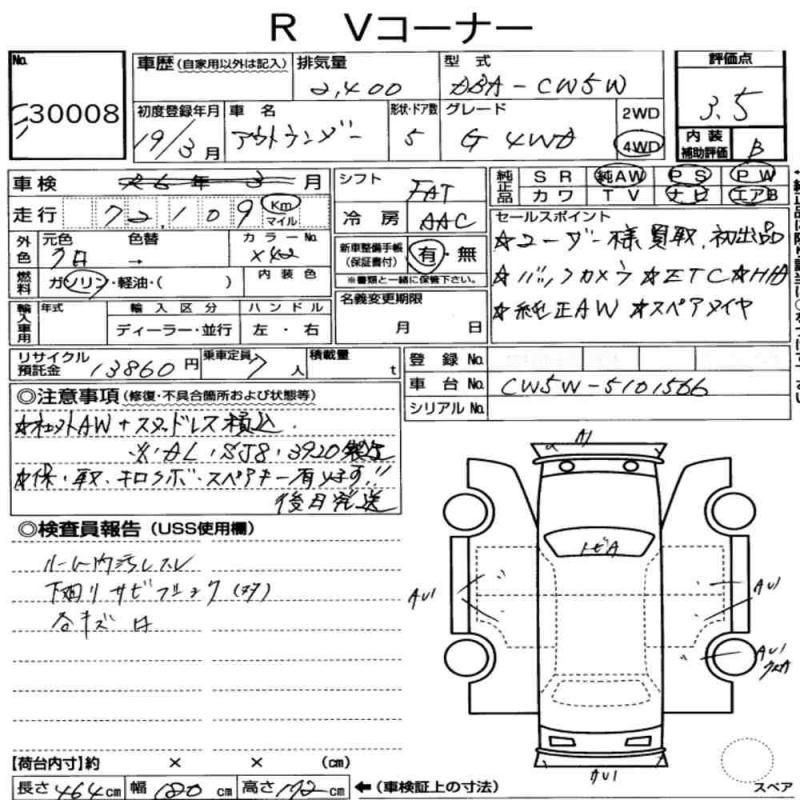 R Vコーナー
No.
30008
車歴 (自家用以外は記入)
排気量
2,400
型式
DBA-CW5W
評価点
3.5
初度登録年月
19/3月
車名
アウトランダー
形状・ドア数
5
グレード
G 4WD
2WD
4WD
内装
補助評価
B
車検
年 3 月
走行
72,109
Km
マイル
外色
元色
クロ
色替
→
カラーNo.
X42
燃料
ガソリン・軽油・( )
内装色
輸入車用
年式
輸入区分
ディーラー・並行
ハンドル
左・右
シフト
FAT
冷房
AAC
純正品
SR
純AW
PS
PW
カワ
TV
ナビ
エアB
新車整備手帳
(保証書付)
有・無
※書類と一緒に保管下さい。
名義変更期限
月 日
セールスポイント
☆ユーザー様買取、初出品
☆バックカメラ ☆ETC ☆HID
☆純正AW ☆スペアタイヤ
リサイクル
預託金
13860円
乗車定員
7人
積載量
t
登録No.
車台No.
CW5W-5101566
シリアルNo.
◎注意事項 (修復・不具合箇所および状態等)
AW+スタッドレス積込
☆保・取・キロクボ・スペアキー有ります!!
後日発送
◎検査員報告 (USS使用欄)
ルーム内汚レスレ
下廻リサビ
各キズ
A1
トビA
AU1
AU1
AU1
AU1
【荷台内寸】約 × × (cm)
長さ464cm
幅180cm
高さ172cm
←(車検証上の寸法)
スペア